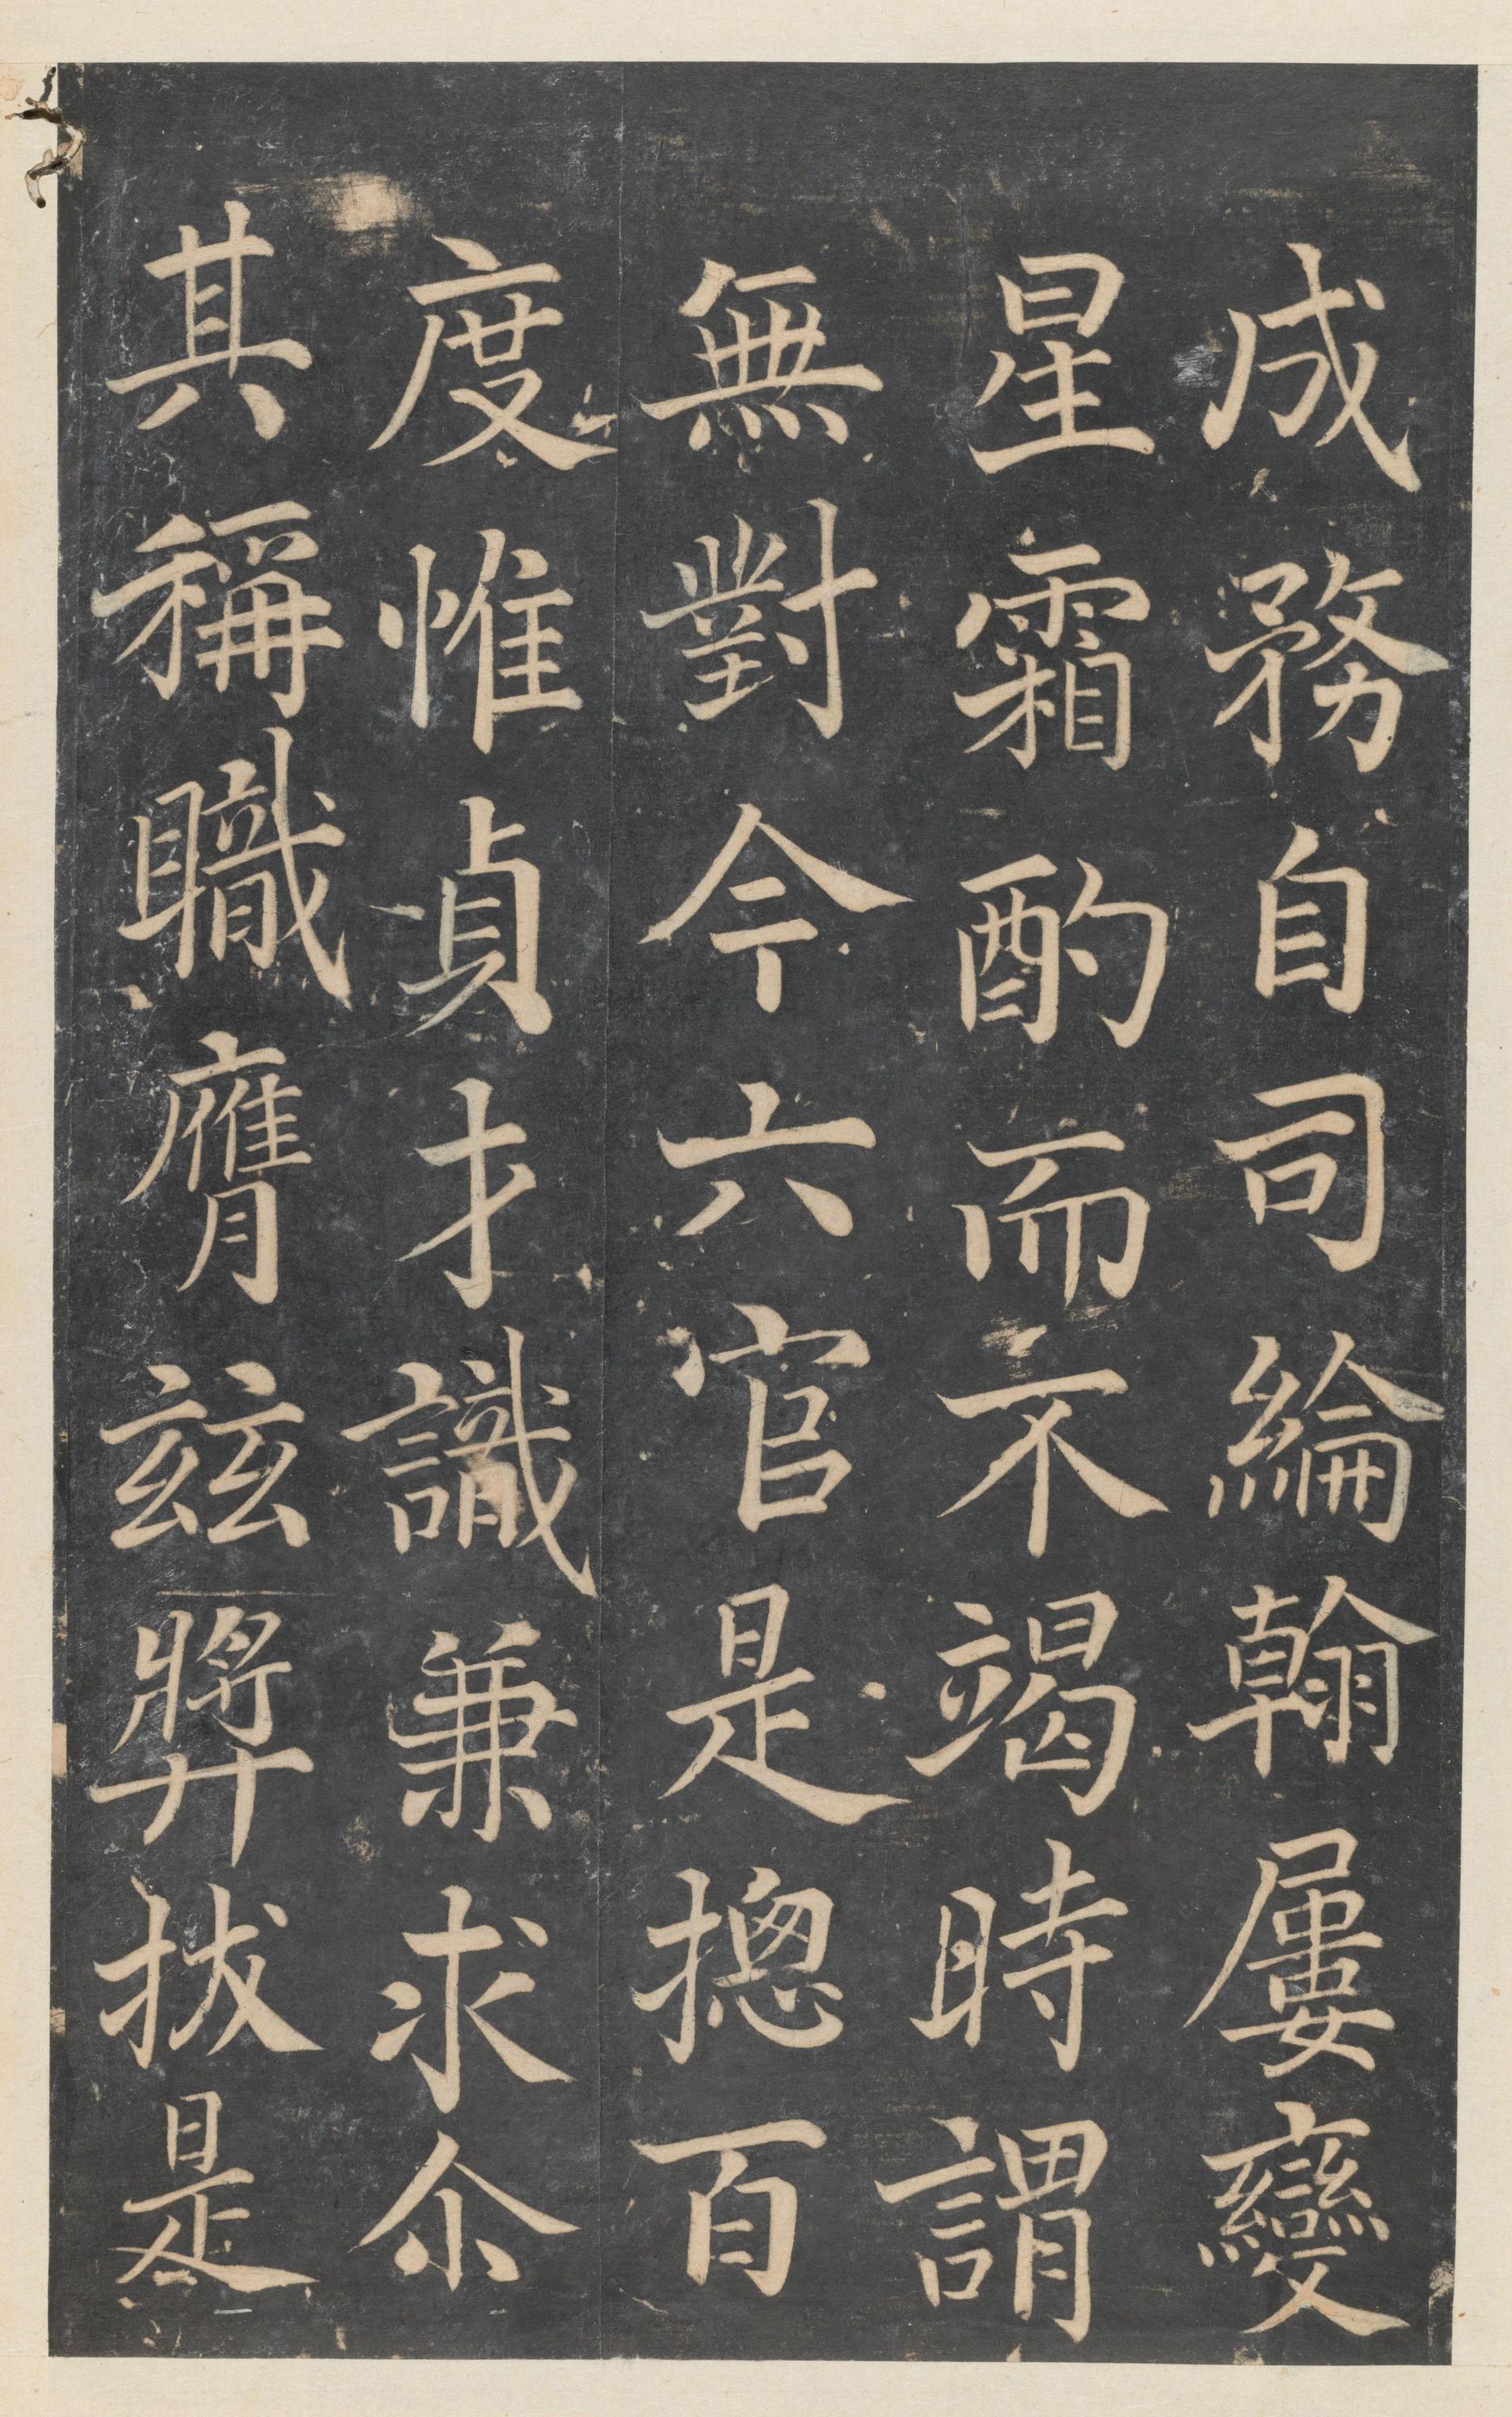 成務自司綸翰屢變
星霜酌而不竭時謂
無對今六官是揔百
度惟貞才識兼求尒
其稱職膺玆奬拔是